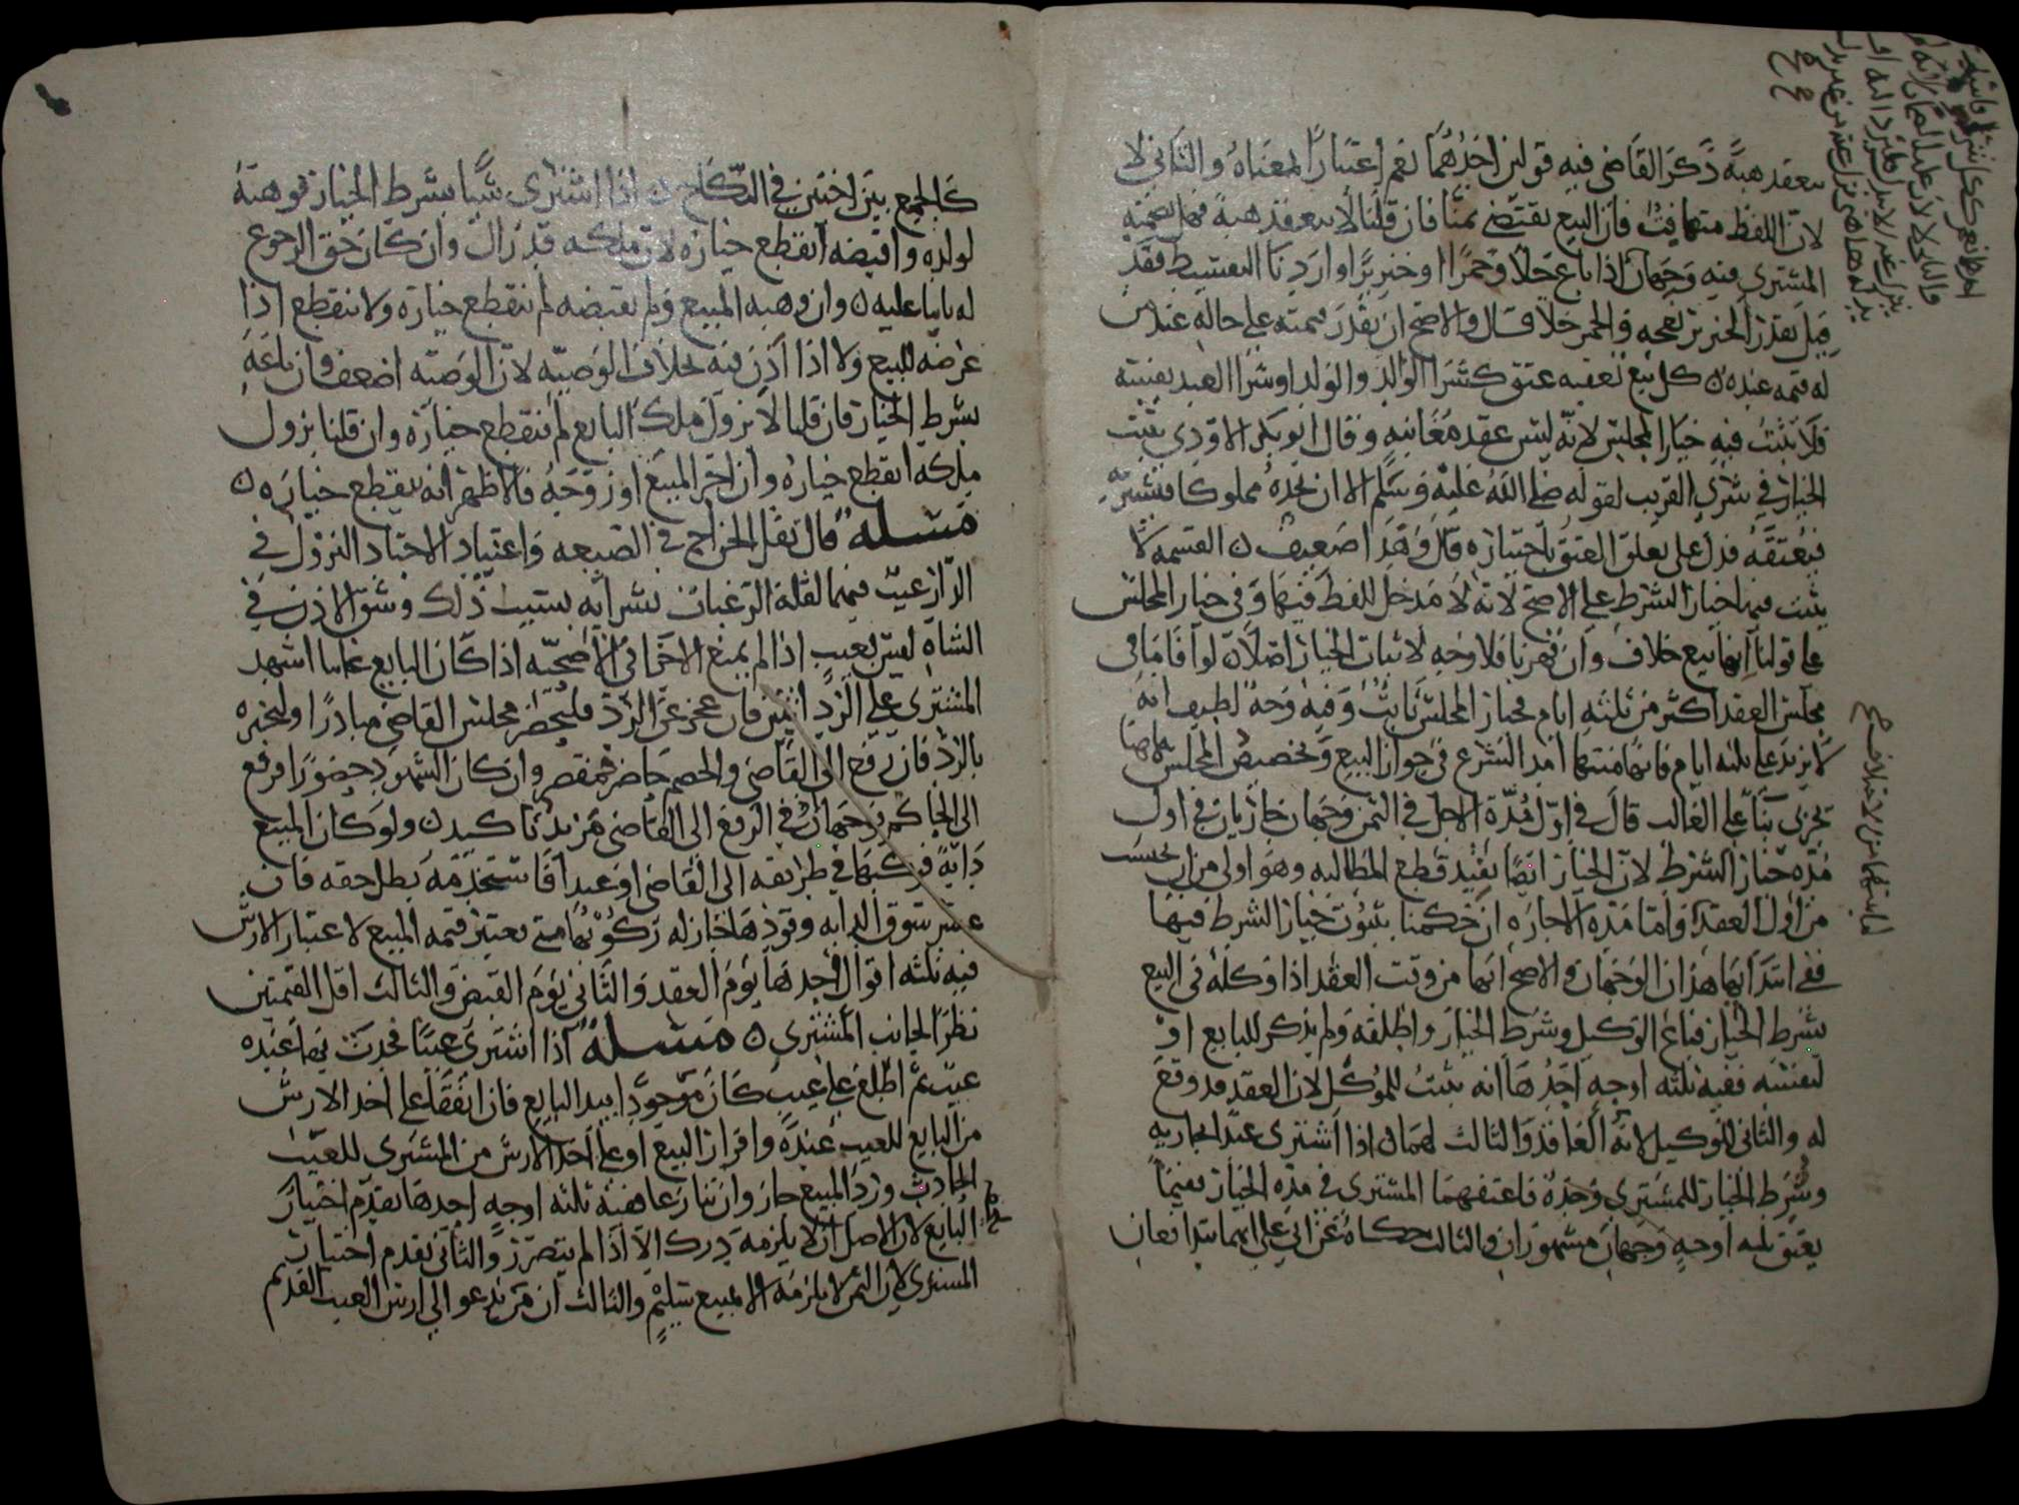 ينعقد هبة ذكر القاضي فيه قولين احدهما نعم اعتبارًا لمعناه والثاني لا
لان اللفظ متهافت فان البيع يقتضي ثمنًا فان قلنا لا ينعقد هبة فهل يضمنه
المشتري فيه وجهان اذا باع خلا وخمرًا او خنزيرًا واردنا التقسيط فقد
قيل يقدر الخنزير نعجه والخمر خلا قال والاصح ان يقدر قيمته على حاله عند من
له قيمه عنده كل بيع تعقبه عتق كشراء الوالد والولد او شرا العبد نفسه
فلا يثبت فيه خيار المجلس لانه ليس عقد مغابنه وقال ابو بكر الاودي يثبت
الخيار في شرى القريب لقوله صلى الله عليه وسلم الا ان يجده مملوكا فيشتريه
فيعتقه فدل على تعلق العتق باختياره قال وهذا ضعيف ن القسمه لا
يثبت فيها خيار الشرط على الاصح لانه لا مدخل للفظ فيها وفي خيار المجلس
على قولنا انها بيع خلاف وان قهرنا فلا وجه لاثبات الخيار اصلا ن لو اقاما في
مجلس العقد اكثر من ثلثه ايام فخيار المجلس ثابت وفيه وجه لطيف انه
لا يزيد على ثلثه ايام فانها منتهى امد الشرع في جواز البيع وتخصيص المجلس
تجري بناً على الغالب قال في اول مدة الاجل في الثمن وجهان جاريان في اول
مده خيار الشرط لان الخيار ايضا يفيد قطع المطالبه وهو اولى من ان يحسب
من اول العقد واما مده الاجاره ان حكمنا بثبوت خيار الشرط فيها
ففي ابتدائها هذان الوجهان والاصح انها من وقت العقد اذا وكله في البيع
بشرط الخيار فباع الوكيل وشرط الخيار واطلقه ولم يذكر للبايع او
لنفسه ففيه ثلثه اوجه احدها انه يثبت للموكل لان العقد قد وقع
له والثاني للوكيل لانه العاقد والثالث لهما ن اذا اشترى عبدا بجاريه
وشرط الخيار للمشتري وحده فاعتقهما المشتري في مده الخيار ففيما
يعتق ثلثه اوجه وجهان مشهوران والثالث حكاه على انهما يتدافعان
كالجمع بين اختين في النكاح ن اذا اشترى شيًا بشرط الخيار فوهبه
لولده واقبضه انقطع خياره لان ملكه قد زال وان كان حق الرجوع
له باقيا عليه ن وان وهبه المبيع ولم يقبضه لم ينقطع خياره ولا ينقطع اذا
عرضه للبيع ولا اذا اذن فيه بخلاف الوصيه لان الوصيه اضعف فان باعه
بشرط الخيار فان قلنا لا يزول ملك البايع لم ينقطع خياره وان قلنا يزول
ملكه انقطع خياره وان اجر المبيع او زوجه فالاظهر انه ينقطع خياره ن
مسله قال ثقل الخراج في الضيعه واعتياد الاجناد النزول في
الدار عيب فيهما لقلة الرغبات بشرايه بسبب ذلك وشق الاذن في
الشاه ليس بعيب اذا لم يمنع الاجزا في الاضحيه اذا كان البايع غايبا اشهد
المشتري على الرد اثنين فان عجز عن الرد فليحضر مجلس القاضي مبادرًا وليخبره
بالرد فان رفع الى القاضي والخصم حاضر فمقصر وان كان الشهود حضورًا فرفع
الى الحاكم وجهان في الرفع الى القاضي مزيد تاكيد ن ولو كان المبيع
دابة فركبها في طريقه الى القاضي او عبدا فاستخدمه بطل حقه فان
عسر سوق الدابه وقودها جاز له ركوبها متى تعتبر قيمه المبيع لاعتبار الارش
فيه ثلثه اقوال احدها يوم العقد والثاني يوم القبض والثالث اقل القيمتين
نظرًا لجانب المشتري ن مسله اذا اشترى عينًا فحدث بها عنده
عيب ثم اطلع على عيب كان موجودًا بيد البايع فان اتفقا على اخذ الارش
من البايع للعيب عنده واقرار البيع او على اخذ الارش من المشتري للعيب
الحادث ورد المبيع جاز وان تنازعا ففيه ثلثه اوجه احدها تقدم اختيار
البايع لان الاصل ان لا يلزمه درك الا اذا لم يتضرر والثاني تقدم اختيار
المشتري لان الثمن لا يلزمه الا لمبيع سليم والثالث ان من يدعو الى ارش العيب القديم